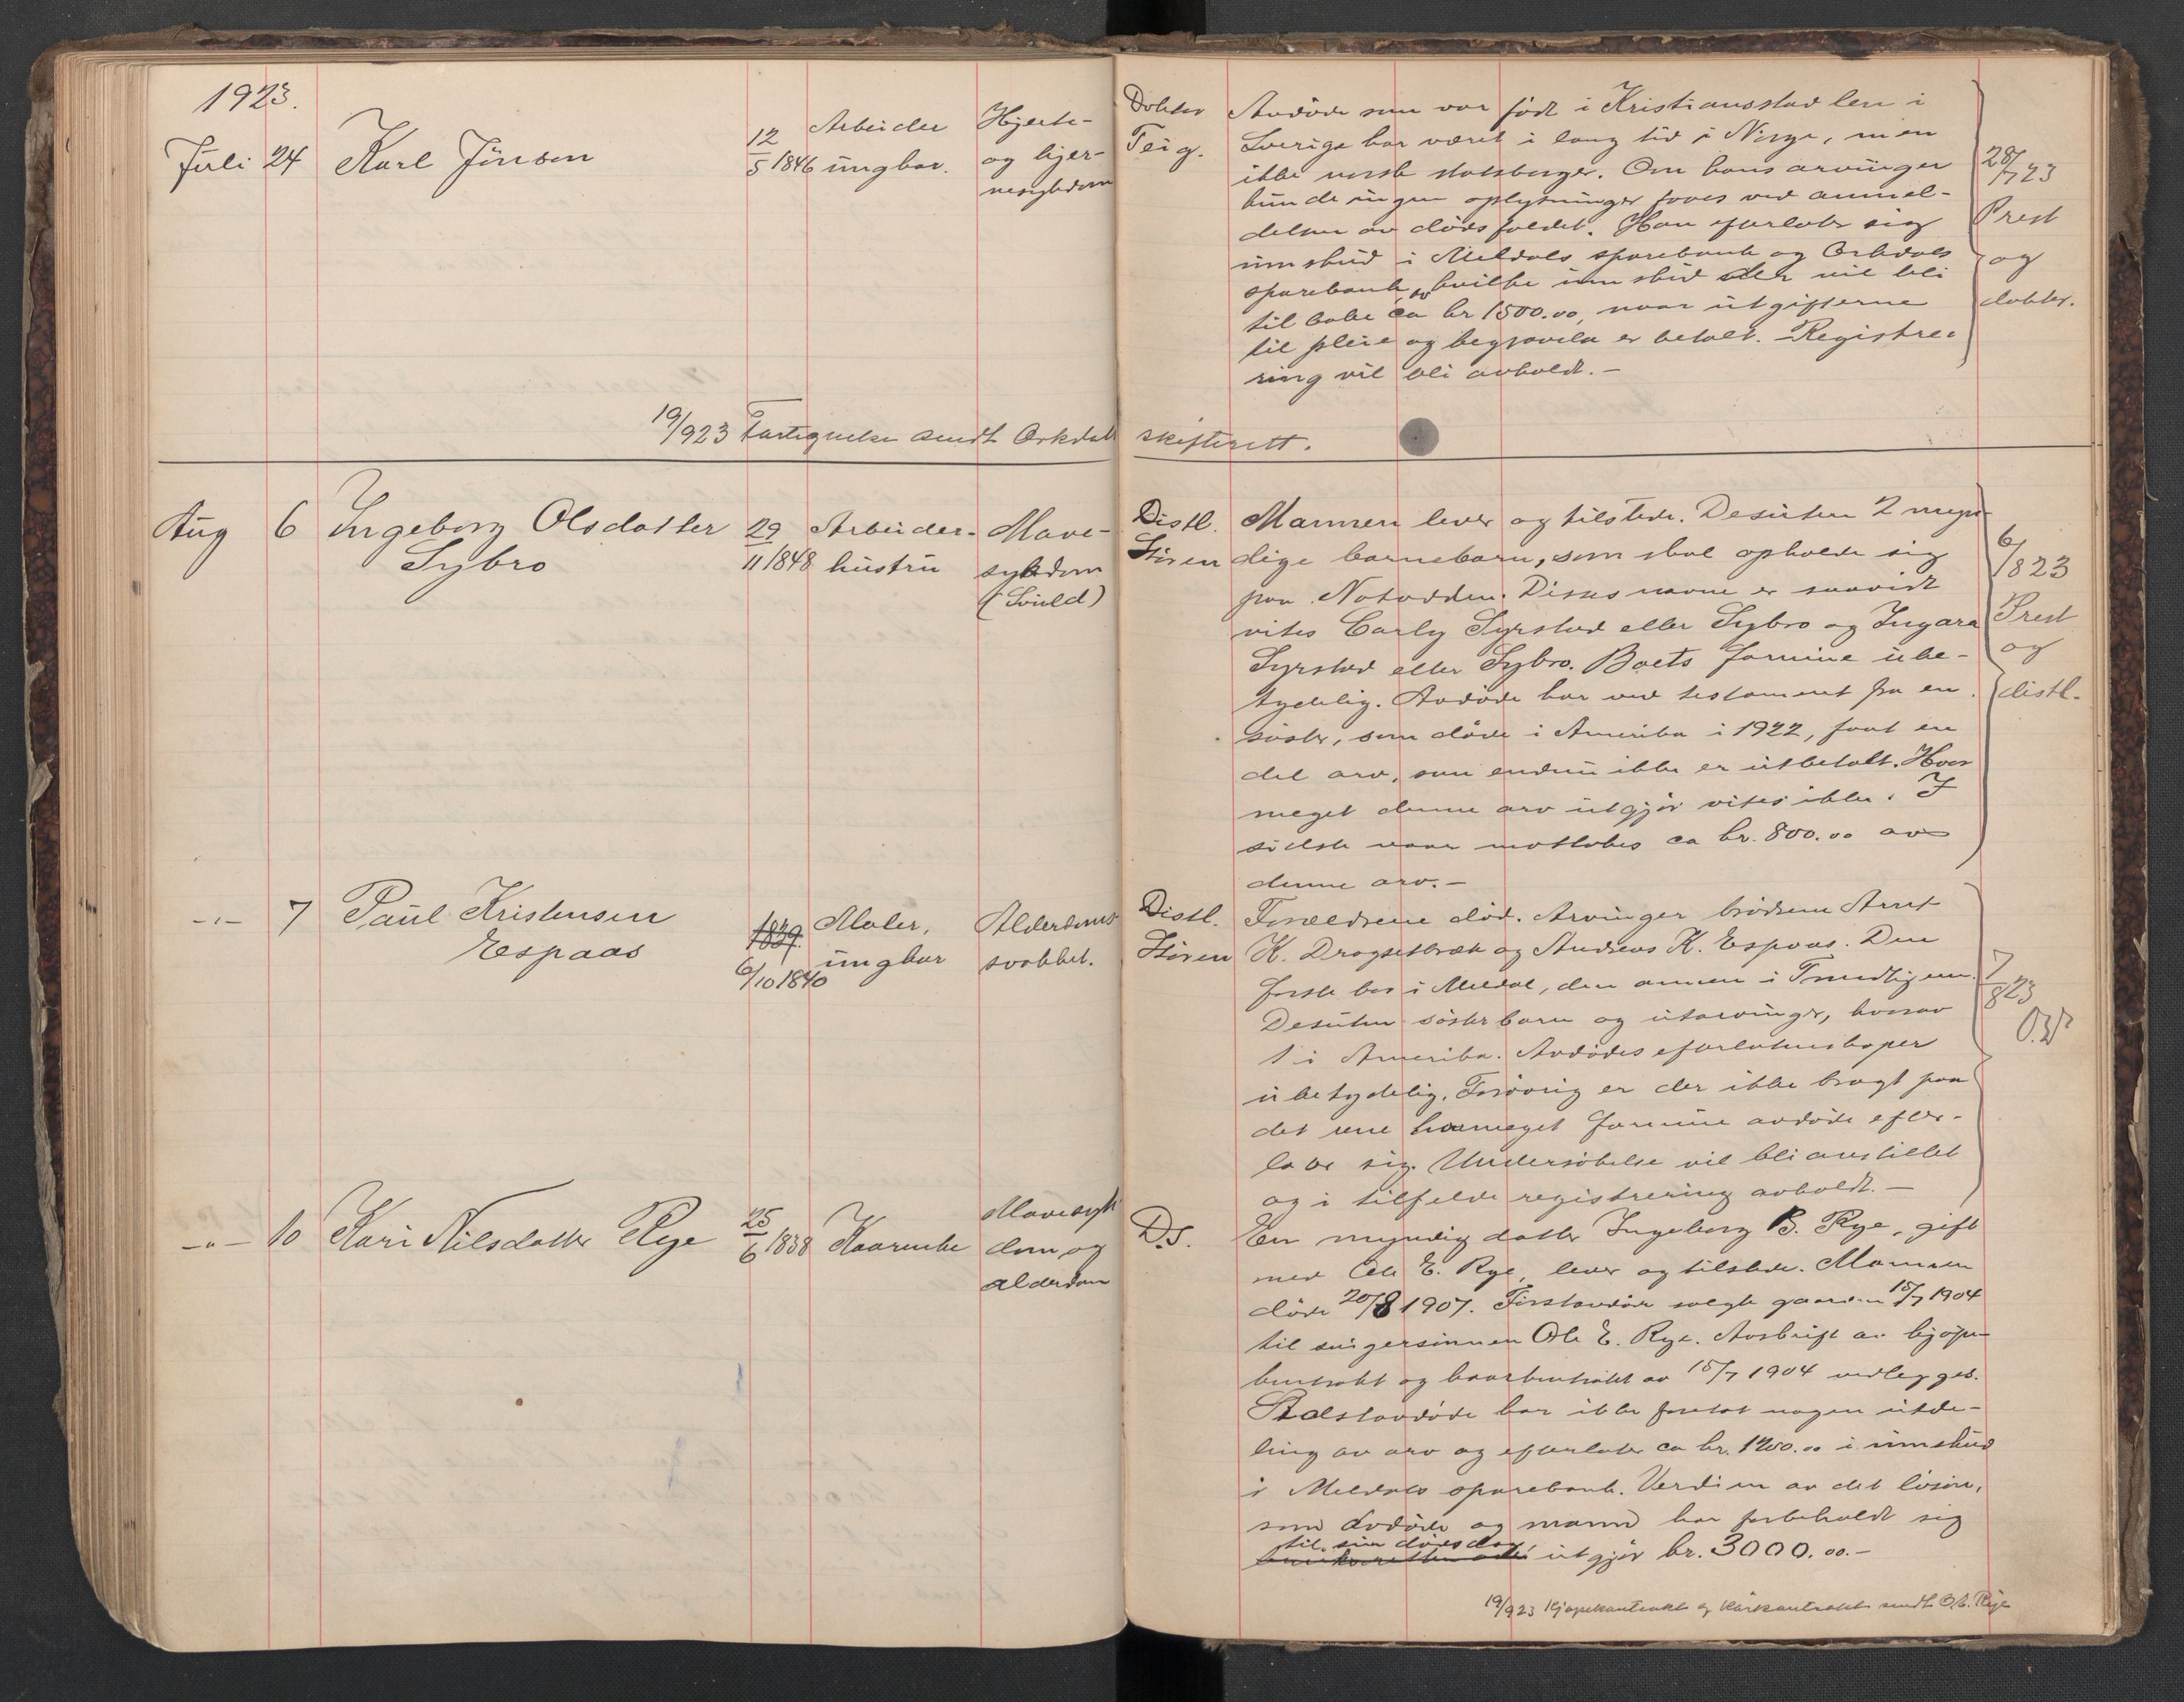 1923.
Juli 24 Karl Jönsen 12/5 1846 Arbeider ungkar. Hjerte- og hjer- nesykdom
Doktor Teig.
Avdöde som var födt i Kristiansstad len i
Sverige har været i lang tid i Norge, men
ikke norsk statsborger. Om hans arvinger
kunde ingen oplysninger faaes ved anmel-
delsen av dödsfaldet. Han efterlater sig
innskud i Meldals sparebank og Orkdals
sparebank, av hvilke innskud der vil bli
tilbake ca kr 1500.00, naar utgifterne
til pleie og begravelse er betalt. Registre-
ring vil bli avholdt.-
28/7 23
Prest
og
doktor.
19/9 23 Fortegnelse sendt Orkdal skifterett.
Aug 6 Ingeborg Olsdatter Sybro 29/11 1848 Arbeider- hustru Mave- sykdom (Svuld)
Distl. Stören
Mannen lever og tilstede. Desuten 2 myn-
dige barnebarn, som skal opholde sig
paa Notodden. Disses navne er saavidt
vites Carly Syrstad eller Sybro og Ingara
Syrstad eller Sybro. Boets formue ube-
tydelig. Avdöde har ved testament fra en
söster, som döde i Amerika i 1922, faat en
del arv, som endnu ikke er utbetalt. Hvor
meget denne arv utgjör vites ikke. I
sidste vaar mottokes ca kr. 800.00 av
denne arv.-
6/8 23
Prest
og
distl.
-"- 7 Paul Kristensen Espaas 1839. 6/10 1840 Maler, ungkar Alderdoms- svakhet.
Distl. Stören
Forældrene död. Arvinger brödrene Arnt
K. Dragsetbræk og Andreas K. Espaas. Den
förste bor i Meldal, den annen i Trondhjem.
Desuten sösterbarn og utarvinger, hvorav
1 i Amerika. Avdödes efterlatenskaper
ubetydelig. Forövrig er der ikke bragt paa
det rene hvormeget formue avdöde efter-
later sig. Undersökelse vil bli anstillet
og i tilfelde registrering avholdt.-
7/8 23
-"- 10 Kari Nilsdatter Rye 25/6 1838 Kaarenke Mavesyk- dom og alderdom
D.S.
En myndig datter Ingeborg B. Rye, gift
med Ole E. Rye, lever og tilstede. Mannen
döde 20/8 1907. Förstavdöde solgte gaarden 15/7 1904
til svigersönnen Ole E. Rye. Avskrift av kjöpe-
kontrakt og kaarkontrakt av 15/7 1904 vedlegges.
Sidstavdöde har ikke foretat nogen utde-
ling av arv og efterlater ca kr. 1200.00 i innskud
i Meldals sparebank. Verdien av det lösöre,
som avdöde og mand har forbeholdt sig
til sin dödsdag utgjör kr. 3000.00.-
19/9 23 Kjøpekontrakt og kårkontrakt sendt O.E. Rye